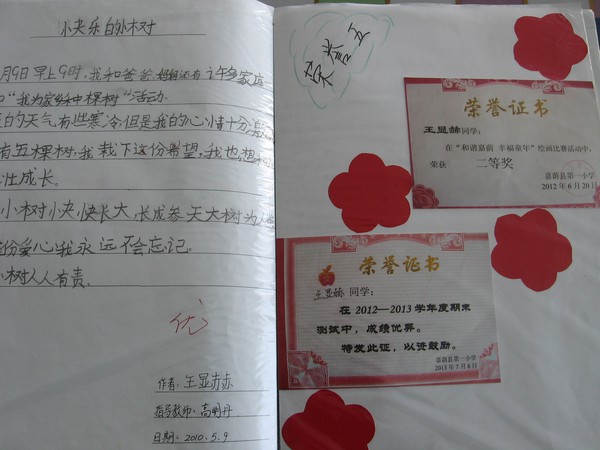 快乐的树
月9日早上9时，我和爸爸妈妈还有许多家庭
"我为家乡种棵树"活动.
的天气有些寒冷，但是我的心情十分
有五棵树，我栽下这份希望，我也想
壮成长。
小树快快长大，长成参天大树为人
份爱心我永远不会忘记。
小树人人有责。
优
作者：王显赫
指导教师：高明丹
日期：2010.5.9
荣誉五
荣誉证书
王显赫同学：
在“和谐嘉荫 幸福童年”绘画比赛活动中，
荣获 二等奖
嘉荫县第一小学
2012年6月20日
荣誉证书
王显赫 同学：
在2012—2013学年度期末
测试中，成绩优异。
特发此证，以资鼓励。
嘉荫县第一小学
2013年7月8日